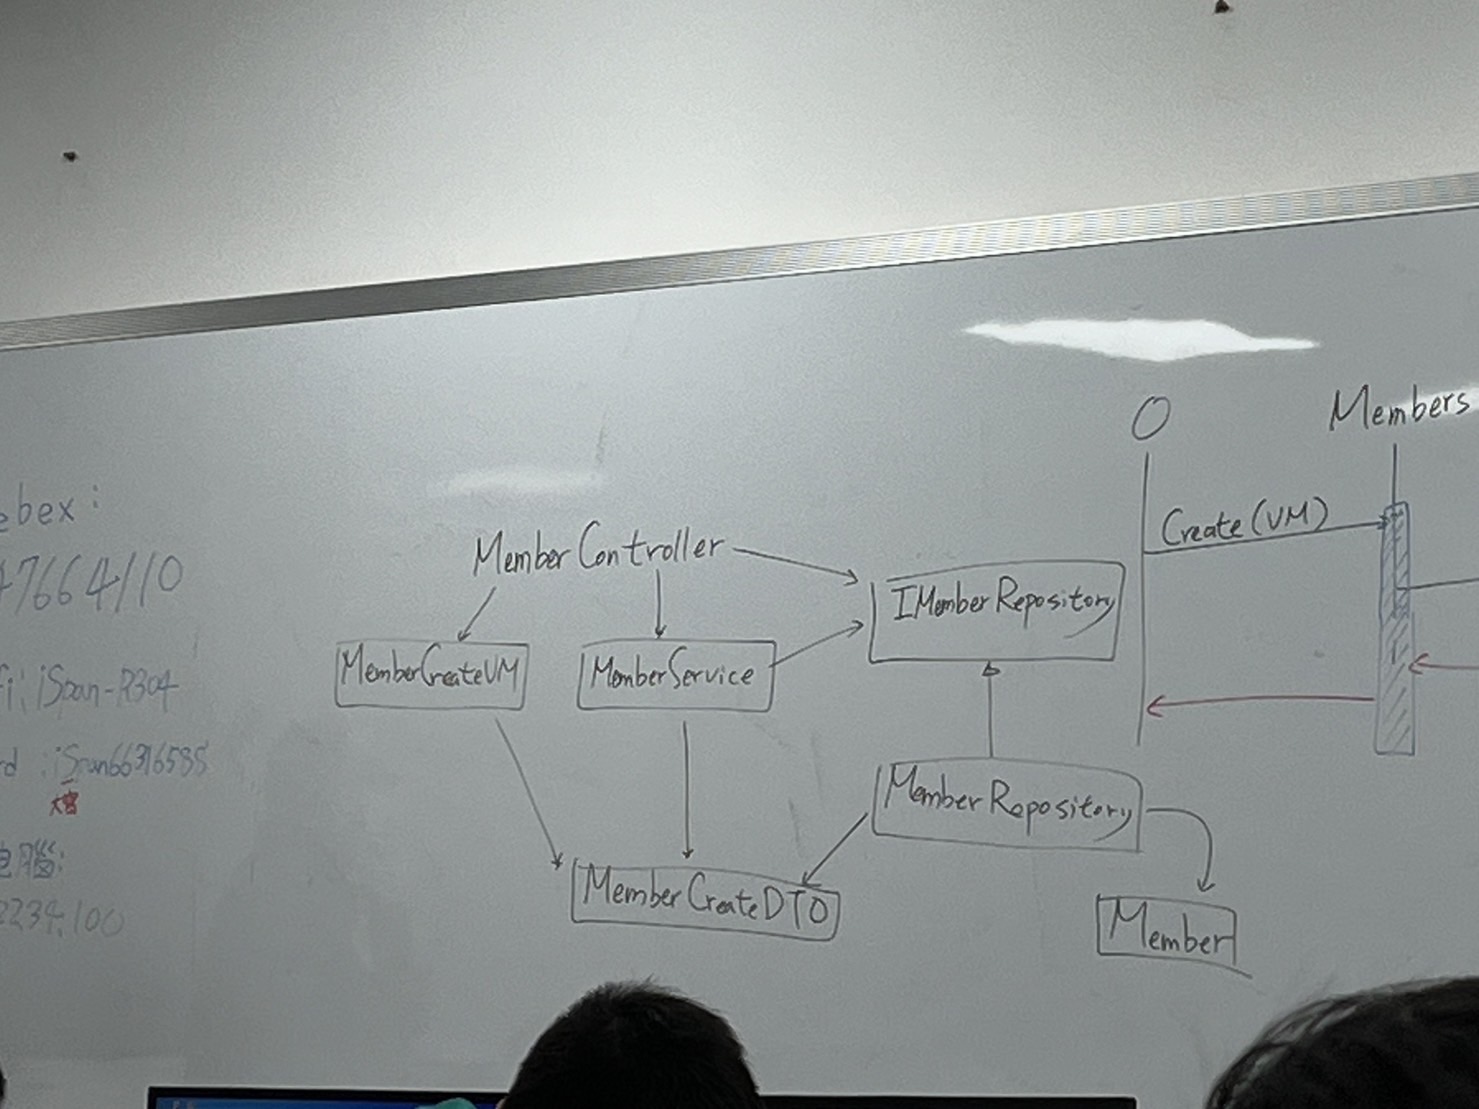 ebex:
47664110
fi: iSpan-R304
rd : iSpan66316585
大寫
电腦:
2234.100
MemberController
MemberCreateVM
MemberService
IMemberRepository
MemberRepository
MemberCreateDTO
Member
Members
Create(VM)